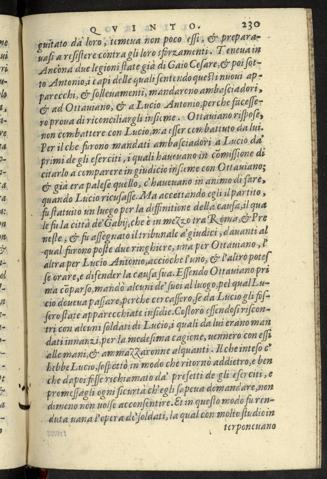 QVINTO. 230
guitato da loro, temeua non poco essi, & prepara-
uasi a resistere contra gli loro sforzamenti. Teneua in
Ancona due legioni state già di Gaio Cesare, & poi sot-
to Antonio, i capi delle quali sentendo questi nuoui ap-
parecchi, & solleuamenti, mandarono ambasciadori,
& ad Ottauiano, & a Lucio Antonio, perche facesse-
ro proua di riconciliargli insieme. Ottauiano rispose,
non combattere con Lucio, ma esser combattuto da lui.
Per il che furono mandati ambasciadori a Lucio da'
primi de gli eserciti, i quali haueuano in cōmissione di
citarlo a comparere in giudicio insieme con Ottauiano;
& già era palese quello, c'haueuano in animo di fare,
quando Lucio ricusasse. Ma accettando egli il partito,
fu statuito un luogo per la diffinitione della causa, il qua
le fu la città de' Gabij, che è in mezzo tra Roma, & Pre
neste, & fu assegnato il tribunale a' giudici, dauanti al
qual furono poste due ringhiere, una per Ottauiano, l'
altra per Lucio Antonio, accioche l'uno, & l'altro potes
se orare, e difender la causa sua. Essendo Ottauiano pri
ma cōparso, mandò alcuni de' suoi al luogo, pel qual Lu-
cio doueua passare, perche cercassero, se da Lucio gli fos-
sero state apparecchiate insidie. Costoro essendosi riscon-
tri con alcuni soldati di Lucio, i quali da lui erano man
dati innanzi, per la medesima cagione, uennero con essi
alle mani, & ammazzaronne alquanti. Il che inteso c'
hebbe Lucio, sospettò in modo che ritornò addietro, e ben
che dapoi fosse richiamato da' prefetti de gli eserciti, e
promessagli ogni sicurtà ch'egli sapeua domandare, non
dimeno non uolse acconsentire. Et in questo modo fu ren-
duta uana l'opera de' soldati, la qual con molto studio in
terponeuano